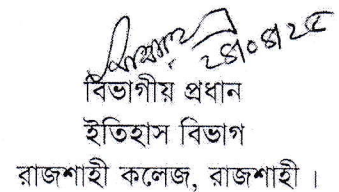 বিভাগীয় প্রধান
ইতিহাস বিভাগ
রাজশাহী কলেজ, রাজশাহী ।